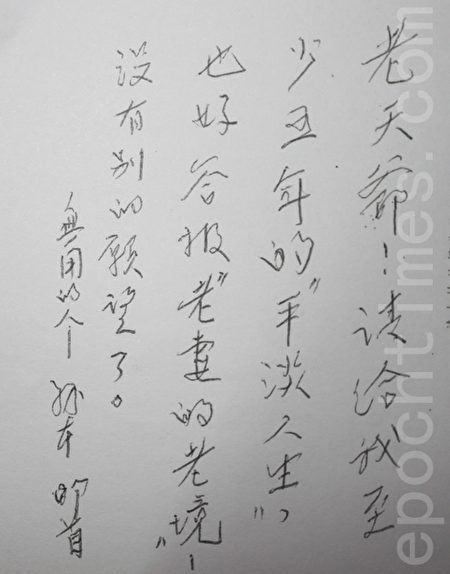 老天爺！请给我至
少五年的“平淡人生”，
也好答报“老妻的老境”！
没有别的願望了。
無用的人— 孫本 叩首
epochtimes.com